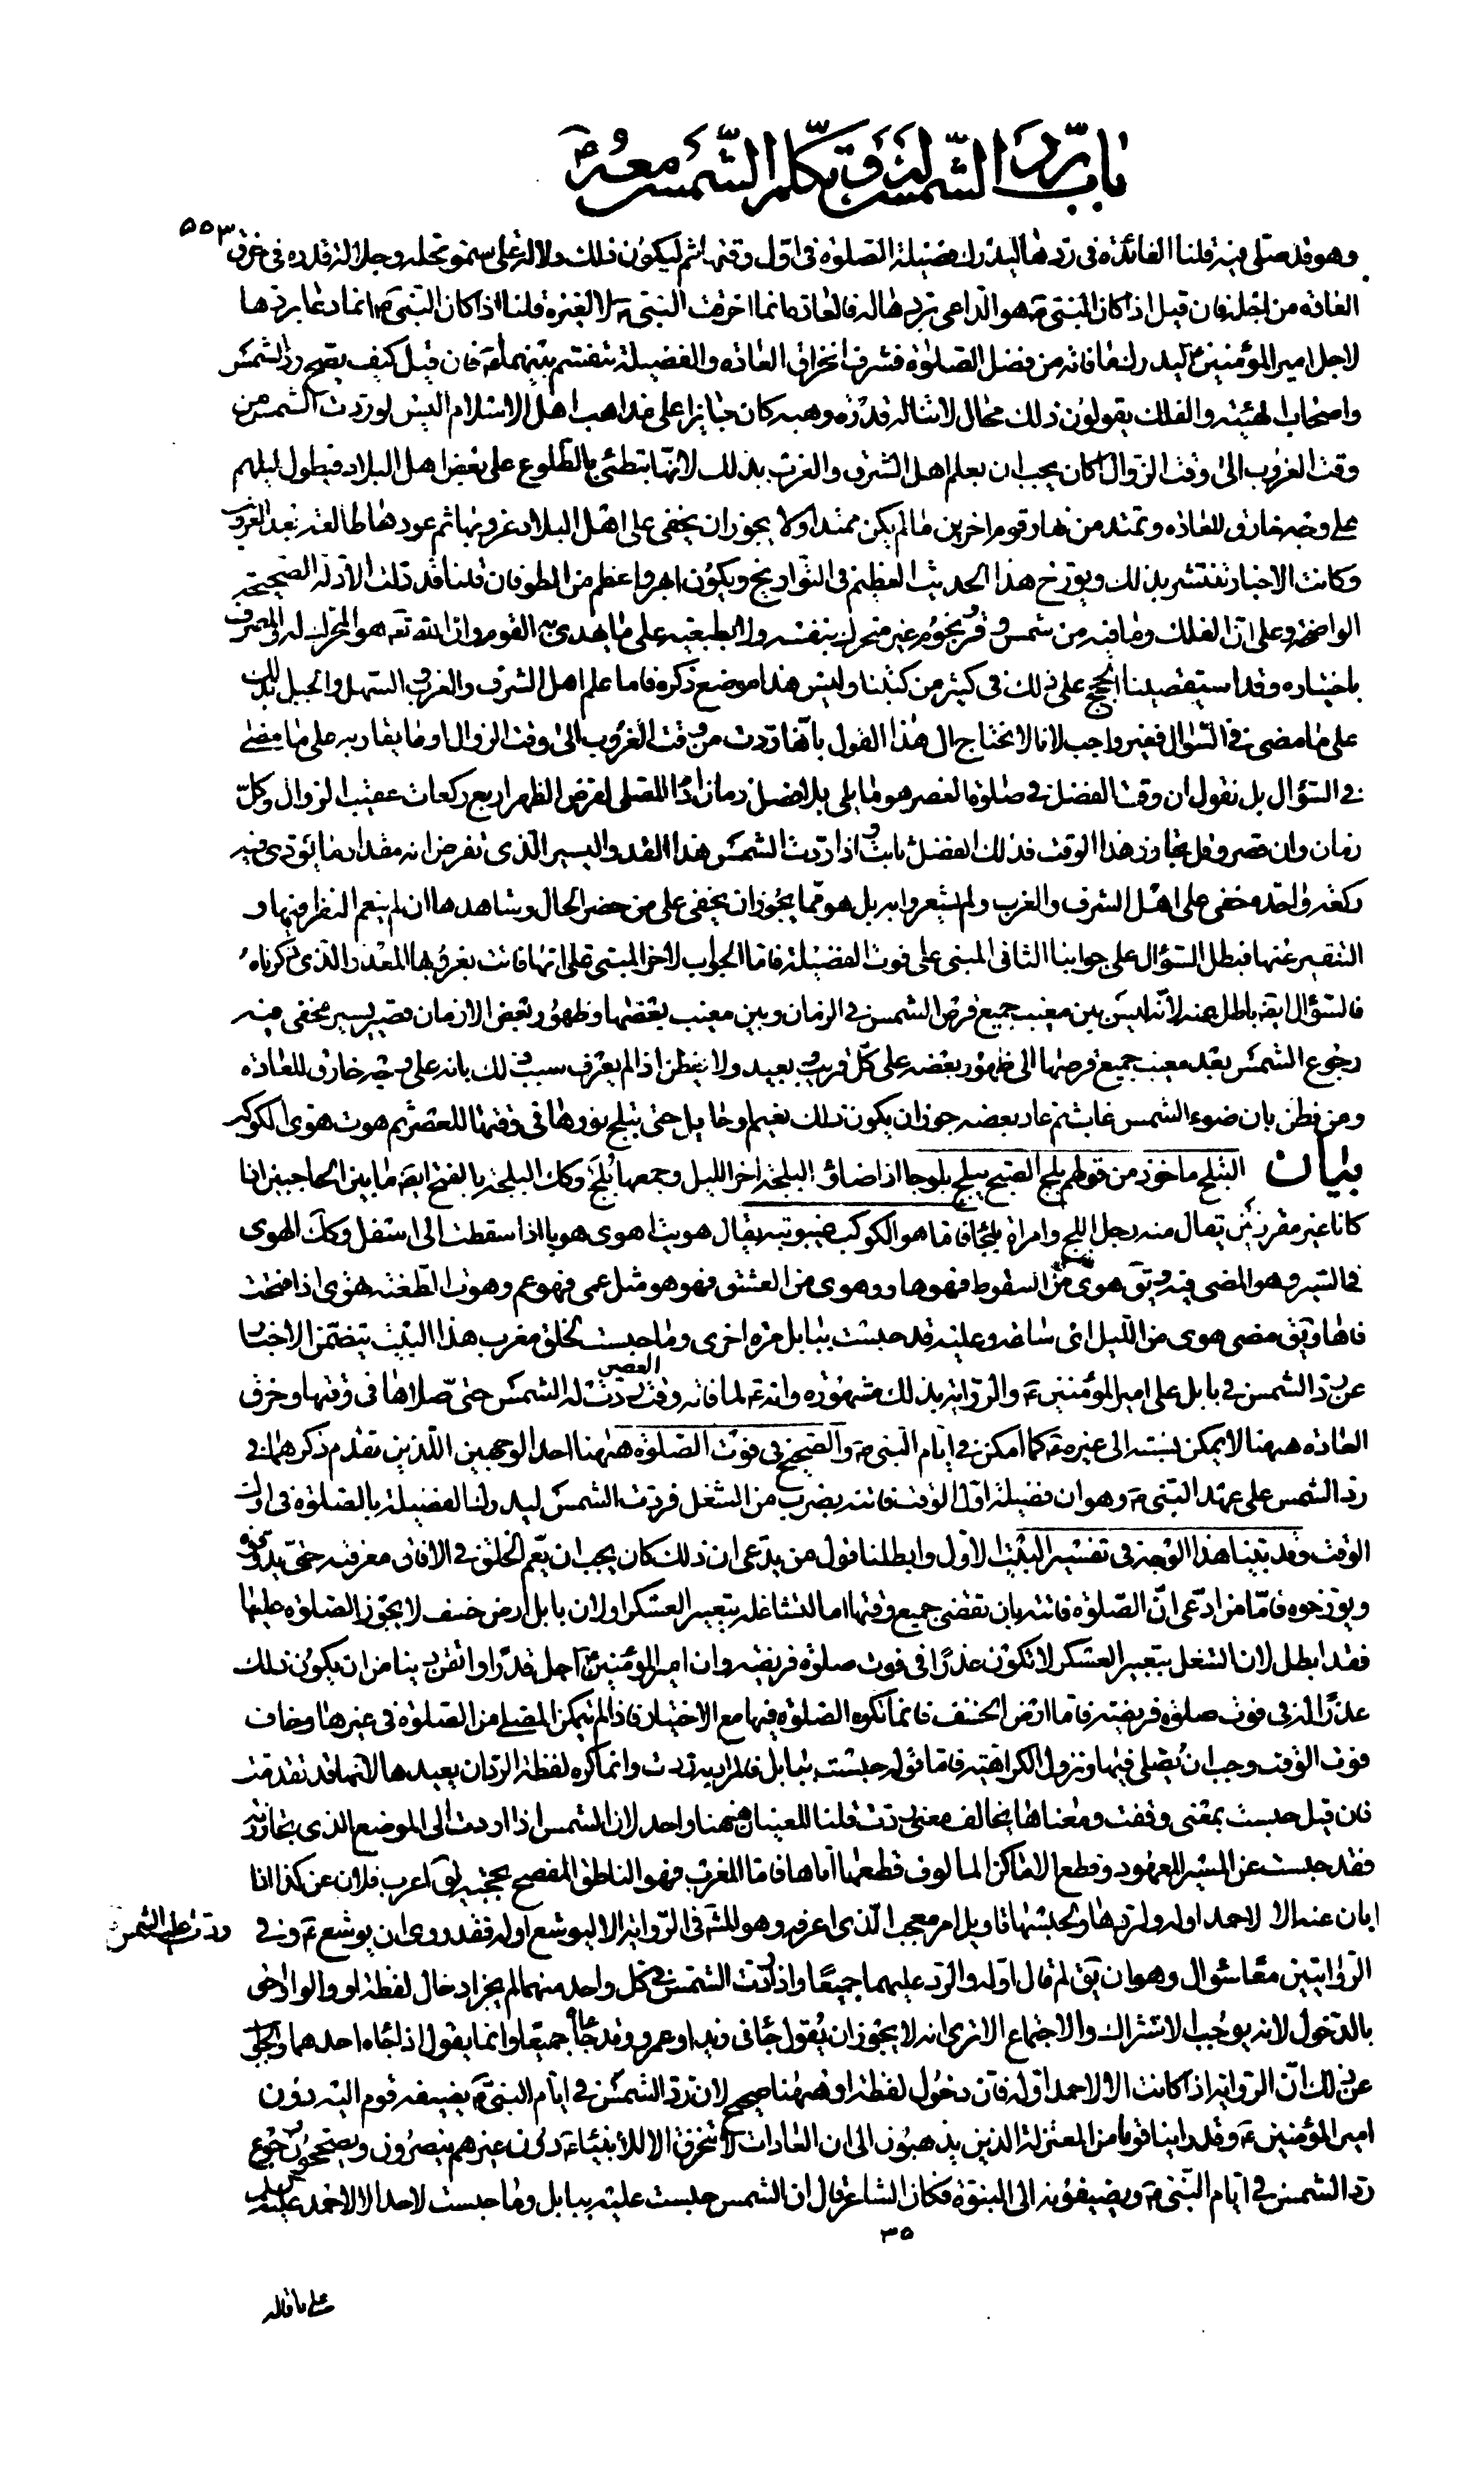 باب رد الشمس له وتكلم الشمس معه ع
٥٥٣
وهو قد صلى فيه قلنا الفائدة في ردها ليدرك فضيلة الصلوة في اول وقتها ثم ليكون ذلك دلالة على سمو محله وجلالة قدره في خرق
العادة من اجله فان قيل اذا كان النبي ص هو الداعي بردها له فالعادة انما اخرقت للنبي ص لا لغيره قلنا اذا كان النبي ص انما دعا بردها
لاجل امير المؤمنين ع ليدرك ما فاته من فضل الصلوة فشرف انخراق العادة والفضيلة تنقسم بينهما ع فان قيل كيف يصح رد الشمس
واصحاب الهيئة والفلك يقولون ذلك محال لا تناله قدرة وهبه كان جايزا على مذاهب اهل الاسلام اليس لو ردت الشمس من
وقت الغروب الى وقت الزوال لكان يجب ان يعلم اهل الشرق والغرب بذلك لانها تبطئ بالطلوع على بعض اهل البلاد فيطول ليلهم
على وجه خارق للعادة وتمتد من نهار قوم اخرين ما لم يكن ممتدا ولا يجوز ان يخفى على اهل البلاد غروبها ثم عودها طالعة بعد الغروب
وكانت الاخبار تنتشر بذلك ويورخ هذا الحديث العظيم في التواريخ ويكون ابهر واعظم من الطوفان قلنا قد دلت الادلة الصحيحة
الواضحة على ان الفلك وما فيه من شمس وقمر ونجوم غير متحرك بنفسه ولا بطبيعته على ما يهدي به القوم وان الله تعه هو المحرك له والمتصرف
باختياره وقد استقصينا الحجج على ذلك في كثير من كتبنا وليس هذا موضع ذكره فاما علم اهل الشرق والغرب والسهل والجبل بذلك
على ما مضى في السؤال فغير واجب لانا لا نحتاج الى هذا القول بانها ردت من وقت الغروب الى وقت الزوال او ما يقاربه على ما مضى
في السؤال بل نقول ان وقت الفضل في صلوة العصر هو ما يلي بلا فصل زمان اداء المصلي لفرض الظهر اربع ركعات عقيب الزوال وكل
زمان وان قصر وقل يجاوز هذا الوقت فذلك الفضل فايت واذا ردت الشمس هذا القدر اليسير الذي نفرض انه مقدار ما يؤدى فيه
ركعة واحدة خفى على اهل الشرق والغرب ولم يشعروا به بل هو مما يجوز ان يخفى على من حضر الحال وشاهدها ان لم ينعم النظر فيها و
التنقير عنها فبطل السؤال على جوابنا الثاني المبني على فوت الفضيلة فاما الجواب الاخر المبني على انها فاتت بغروبها للعذر الذي ذكرناه
فالسؤال ايضه باطل عنه لانه ليس بين مغيب جميع قرص الشمس في الزمان وبين مغيب بعضها وظهور بعض الا زمان قصير يسير يخفى فيه
رجوع الشمس بعد مغيب جميع قرصها الى ظهور بعضه على كل قريب وبعيد ولا يفطن اذا لم يعرف سبب ذلك بانه على وجه خارق للعادة
ومن فطن بان ضوء الشمس غاب ثم عاد بعضه جوز ان يكون ذلك لغيم او حايل حتى تبلج نورها في وقتها للعصر ثم هوت هوى الكوكب
بيان التبلج ماخوذ من قولهم بلج الصبح يبلج بلوجا اذا ضاء والبلجة اخر الليل وجمعها بلج وكك البلجة بالفتح ايضه ما بين الحاجبين اذا
كانا غير مقرونين يقال منه رجل ابلج وامراة بلجاء فاما هوى الكوكب غيبوبته يقال هويت اهوى هويا اذا سقطت الى اسفل وكك الهوى
في السير وهو المضى فيه ويق هوى من السقوط فهو هاو وهوى من العشق فهو هو مثل عمى فهو عم وهوت الطعنة تهوى اذا فتحت
فاها ويق مضى هوى من الليل اي ساعة وعليه قد حبست ببابل مرة اخرى وما حبست لخلق مغرب هذا البيت يتضمن الاخبار
عن رد الشمس في بابل على امير المؤمنين ع والرواية بذلك مشهورة وانه ع لما فاته وقت العصر ردت له الشمس حتى صلاها في وقتها وخرق
العادة ههنا لا يمكن نسبته الى غيره ع كما امكن في ايام النبي ص والصحيح في فوت الصلوة ههنا احد الوجهين اللذين تقدم ذكرهما في
رد الشمس على عهد النبي ص وهو ان فضيلة اول الوقت فاتته بضرب من الشغل فردت الشمس ليدرك الفضيلة بالصلوة في اول
الوقت وقد بينا هذا الوجه في تفسير البيت الاول وابطلنا قول من يدعي ان ذلك كان يجب ان يعم الخلق في الافاق معرفته حتى يدونوه
ويورخوه فاما من ادعى ان الصلوة فاتته بان تقضى جميع وقتها اما لتشاغله بتعبير العسكر او لان بابل ارض خسف لا يجوز الصلوة عليها
فقد ابطل لان الشغل بتعبير العسكر لا تكون عذرا في فوت صلوة فريضة وان امير المؤمنين ع اجل قدرا واتقن دينا من ان يكون ذلك
عذرا له في فوت صلوة فريضة فاما ارض الخسف فانما تكره الصلوة فيها مع الاختيار فاذا لم يتمكن المصلي من الصلوة في غيرها وخاف
فوت الوقت وجب ان يصلي فيها وتزول الكراهية فاما قوله حبست ببابل فالمراد به ردت وانما كره لفظة الرد ان يعيدها لانها قد تقدمت
فان قيل حبست بمعنى وقفت ومعناها يخالف معنى ردت قلنا المعنيان ههنا واحد لان الشمس اذا ردت الى الموضع الذي تجاوزته
فقد حبست عن المسير المعهود وقطع الاماكن المالوف قطعها اياها فاما المغرب فهو الناطق المفصح بحجته يق اعرب فلان عن كذا اذا
ابان عنه الا لاحمد او له ولردها ولحبسها تاويل امر معجب الذي اعرفه وهو المشه في الرواية الا ليوشع او له فقد روى ان يوشع ع وفي
ردت عليه الشمس
الروايتين معا سؤال وهو ان يق لم قال او له والرد عليهما جميعا واذا ردت الشمس لكل واحد منهما لم يجز ادخال لفظة او والواو احق
بالدخول لانه يوجب الاشتراك والاجتماع الا ترى انه لا يجوز ان يقول جاءني زيد او عمرو وقد جاءا جميعا وانما يقول اذا جاءه احدهما والجواب
عن ذلك ان الرواية اذا كانت الا لاحمد او له فان دخول لفظة او ههنا صحيح لان رد الشمس في ايام النبي ص يضيفه قوم اليه دون
امير المؤمنين ع وقد راينا قوما من المعتزلة الذين يذهبون الى ان العادات لا تنخرق الا للانبياء ع دون غيرهم ينصرون ويصححون رجوع
رد الشمس في ايام النبي ص ويضيفونه الى النبوة فكان الشاعر قال ان الشمس حبست عليه ببابل وما حبست لاحد الا لاحمد عليه السلام
٣٥
على ما قاله